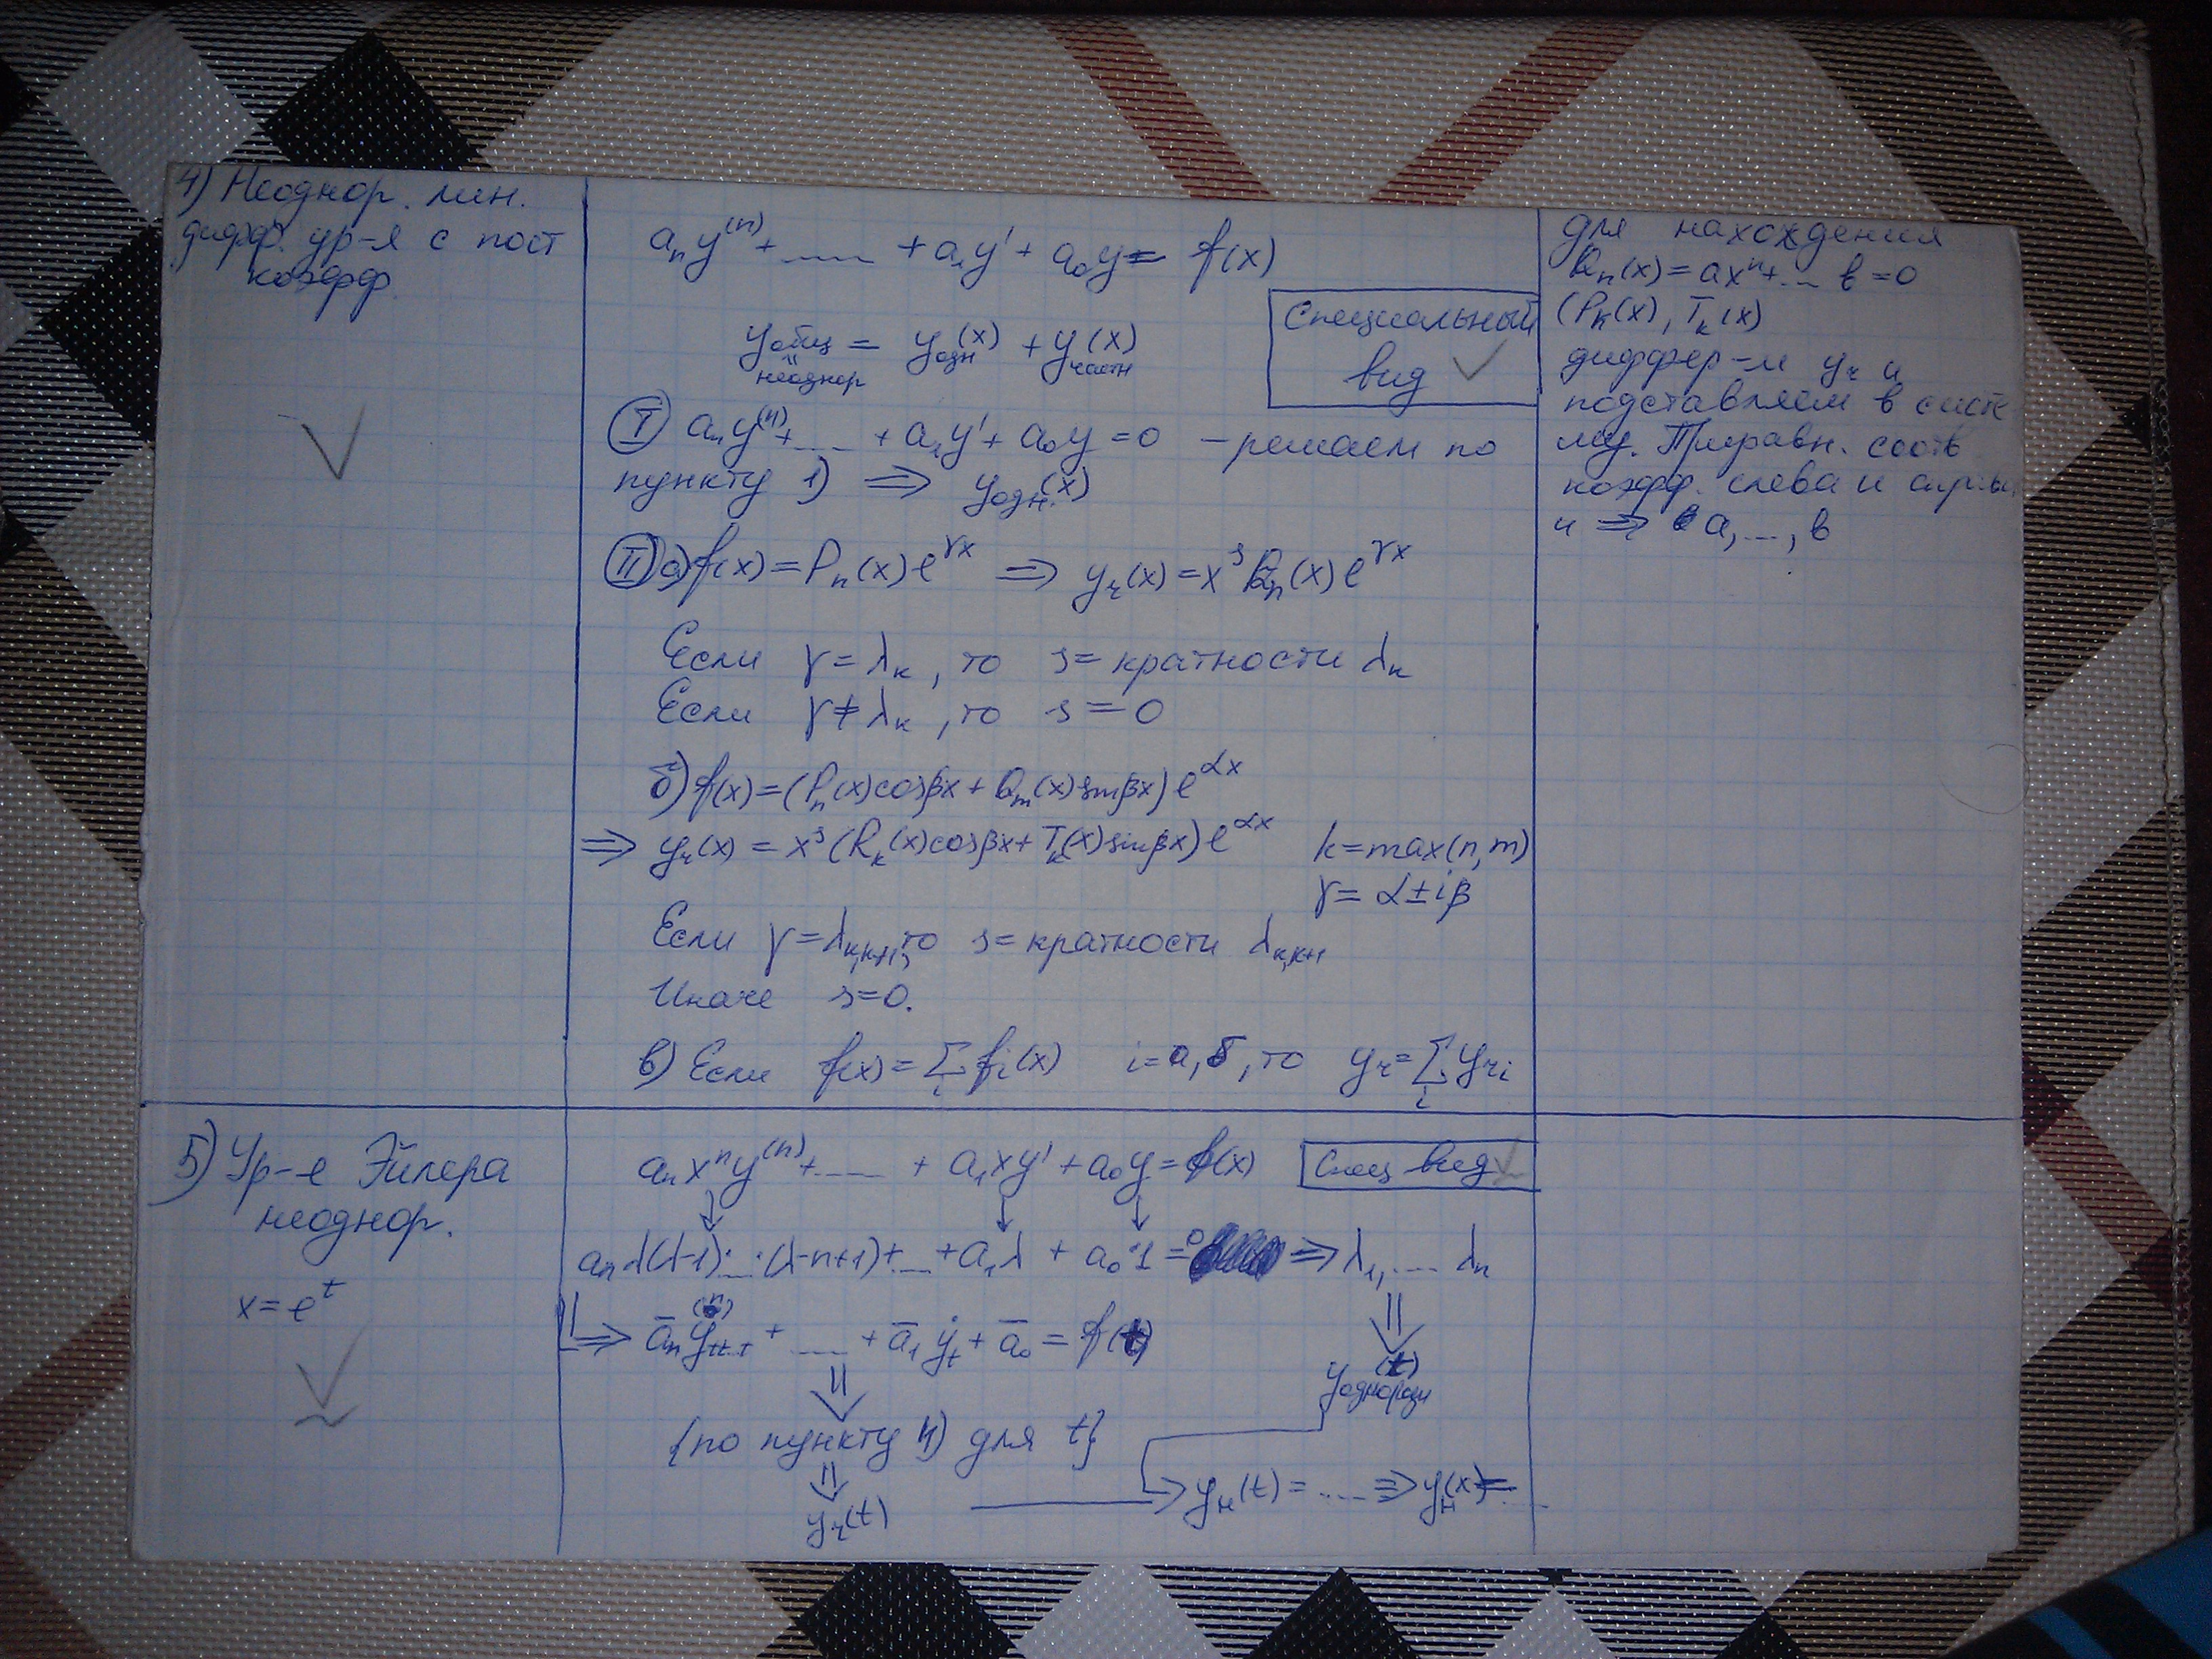 4) Неоднор. лин.
дифф. ур-я с пост
коэфф.
aₙy⁽ⁿ⁾+ ..... + a₁y' + a₀y = f(x)
Специальный
вид ✓
yобщ = yодн(x) + yчастн(x)
неоднор
Ⓘ aₙy⁽ⁿ⁾+ ... + a₁y' + a₀y = 0 – решаем по
пункту 1) ⇒ yодн.(x)
Ⓘⓘ а) f(x) = Pₙ(x)e^γx ⇒ yч(x) = x^s Qₙ(x)e^γx
Если γ = λₖ, то s = кратности λₖ
Если γ ≠ λₖ, то s = 0
б) f(x) = (Pₙ(x)cosβx + Qₘ(x)sinβx)e^αx
⇒ yч(x) = x^s (Rₖ(x)cosβx + Tₖ(x)sinβx)e^αx k = max(n,m)
γ = α ± iβ
Если γ = λₖ,ₖ₊₁, то s = кратности λₖ,ₖ₊₁
Иначе s = 0.
в) Если f(x) = Σᵢ fᵢ(x) i = а, б, то yч = Σᵢ yчᵢ
для нахождения
Qₙ(x) = axⁿ + ... в = 0
(Pₖ(x), Tₖ(x)
диффер-м yч и
подставляем в систе
му. Приравн. соотв
коэфф. слева и справа
и ⇒ a, ..., в
5) Ур-е Эйлера
неоднор.
x = e^t
aₙxⁿy⁽ⁿ⁾+ ..... + a₁xy' + a₀y = f(x) Спец вид ✓
aₙλ(λ-1)·...·(λ-n+1) + ... + a₁λ + a₀·1 = 0 ⇒ λ₁, ... λₙ
⇒ āₙy⁽ⁿ⁾tt..t + ..... + ā₁ẏt + ā₀ = f(t)
yоднородн(t)
{по пункту 4) для t}
yч(t) → yн(t) = ..... ⇒ yн(x) = ...